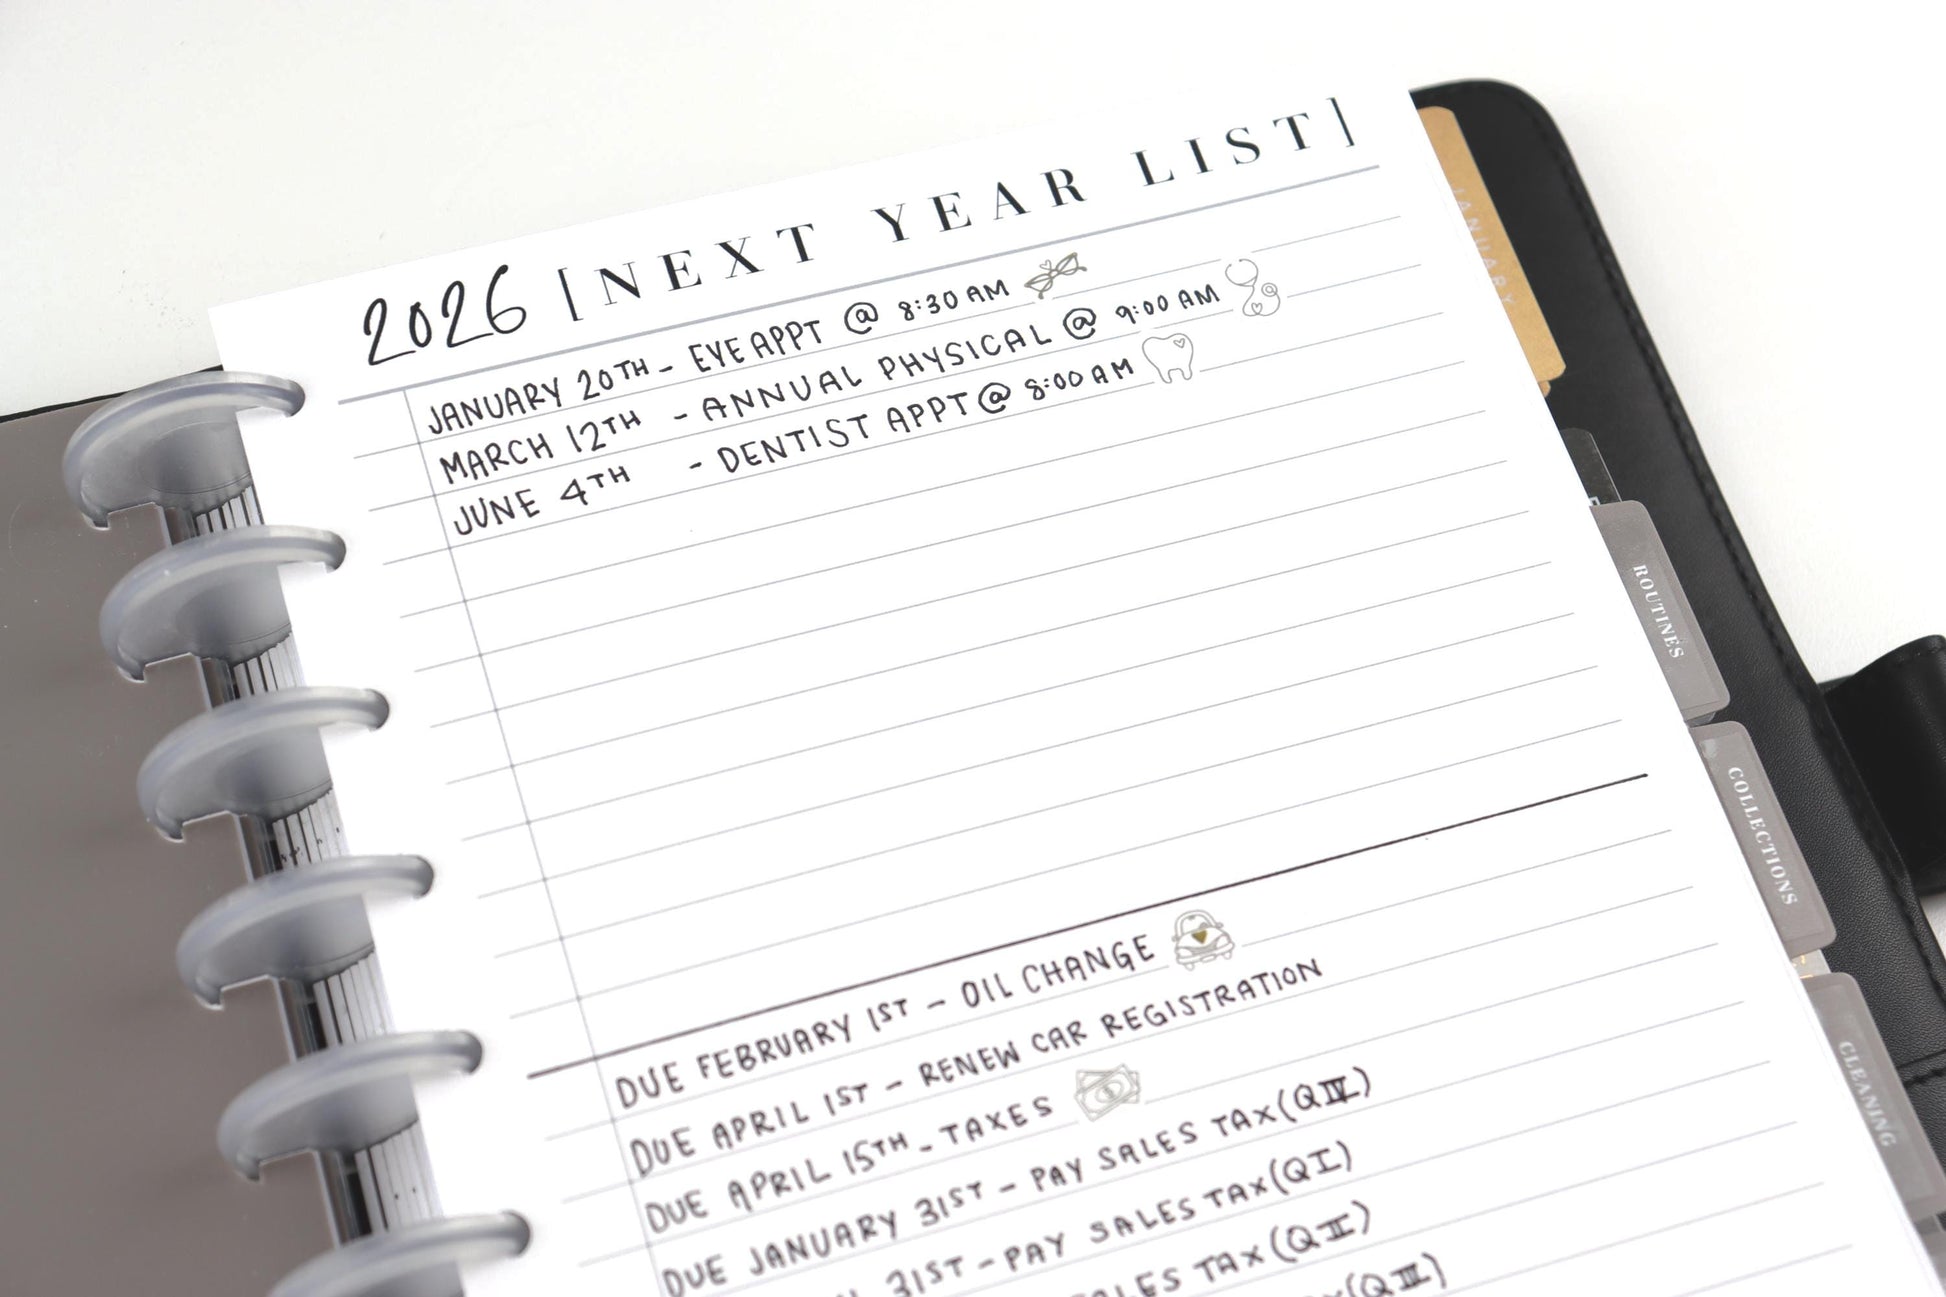 2026 [NEXT YEAR LIST]
JANUARY 20TH - EYE APPT @ 8:30 AM
MARCH 12TH - ANNUAL PHYSICAL @ 9:00 AM
JUNE 4TH - DENTIST APPT @ 8:00 AM
DUE FEBRUARY 1ST - OIL CHANGE
DUE APRIL 1ST - RENEW CAR REGISTRATION
DUE APRIL 15TH - TAXES
DUE JANUARY 31ST - PAY SALES TAX (QIV)
31ST - PAY SALES TAX (QI)
TAX (QII)
(QIII)
JANUARY
ROUTINES
COLLECTIONS
CLEANING